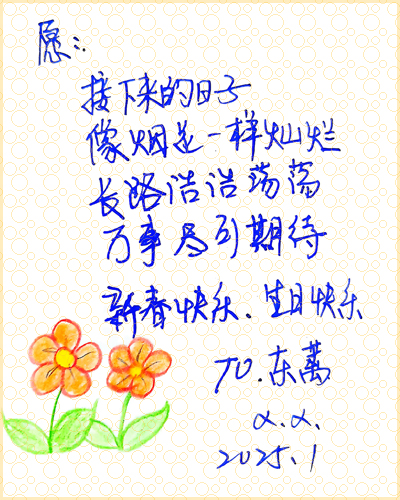 愿:
接下来的日子
像烟花一样灿烂
长路浩浩荡荡
万事皆可期待
新春快乐、生日快乐
TO.东萬
α.α.
2025.1